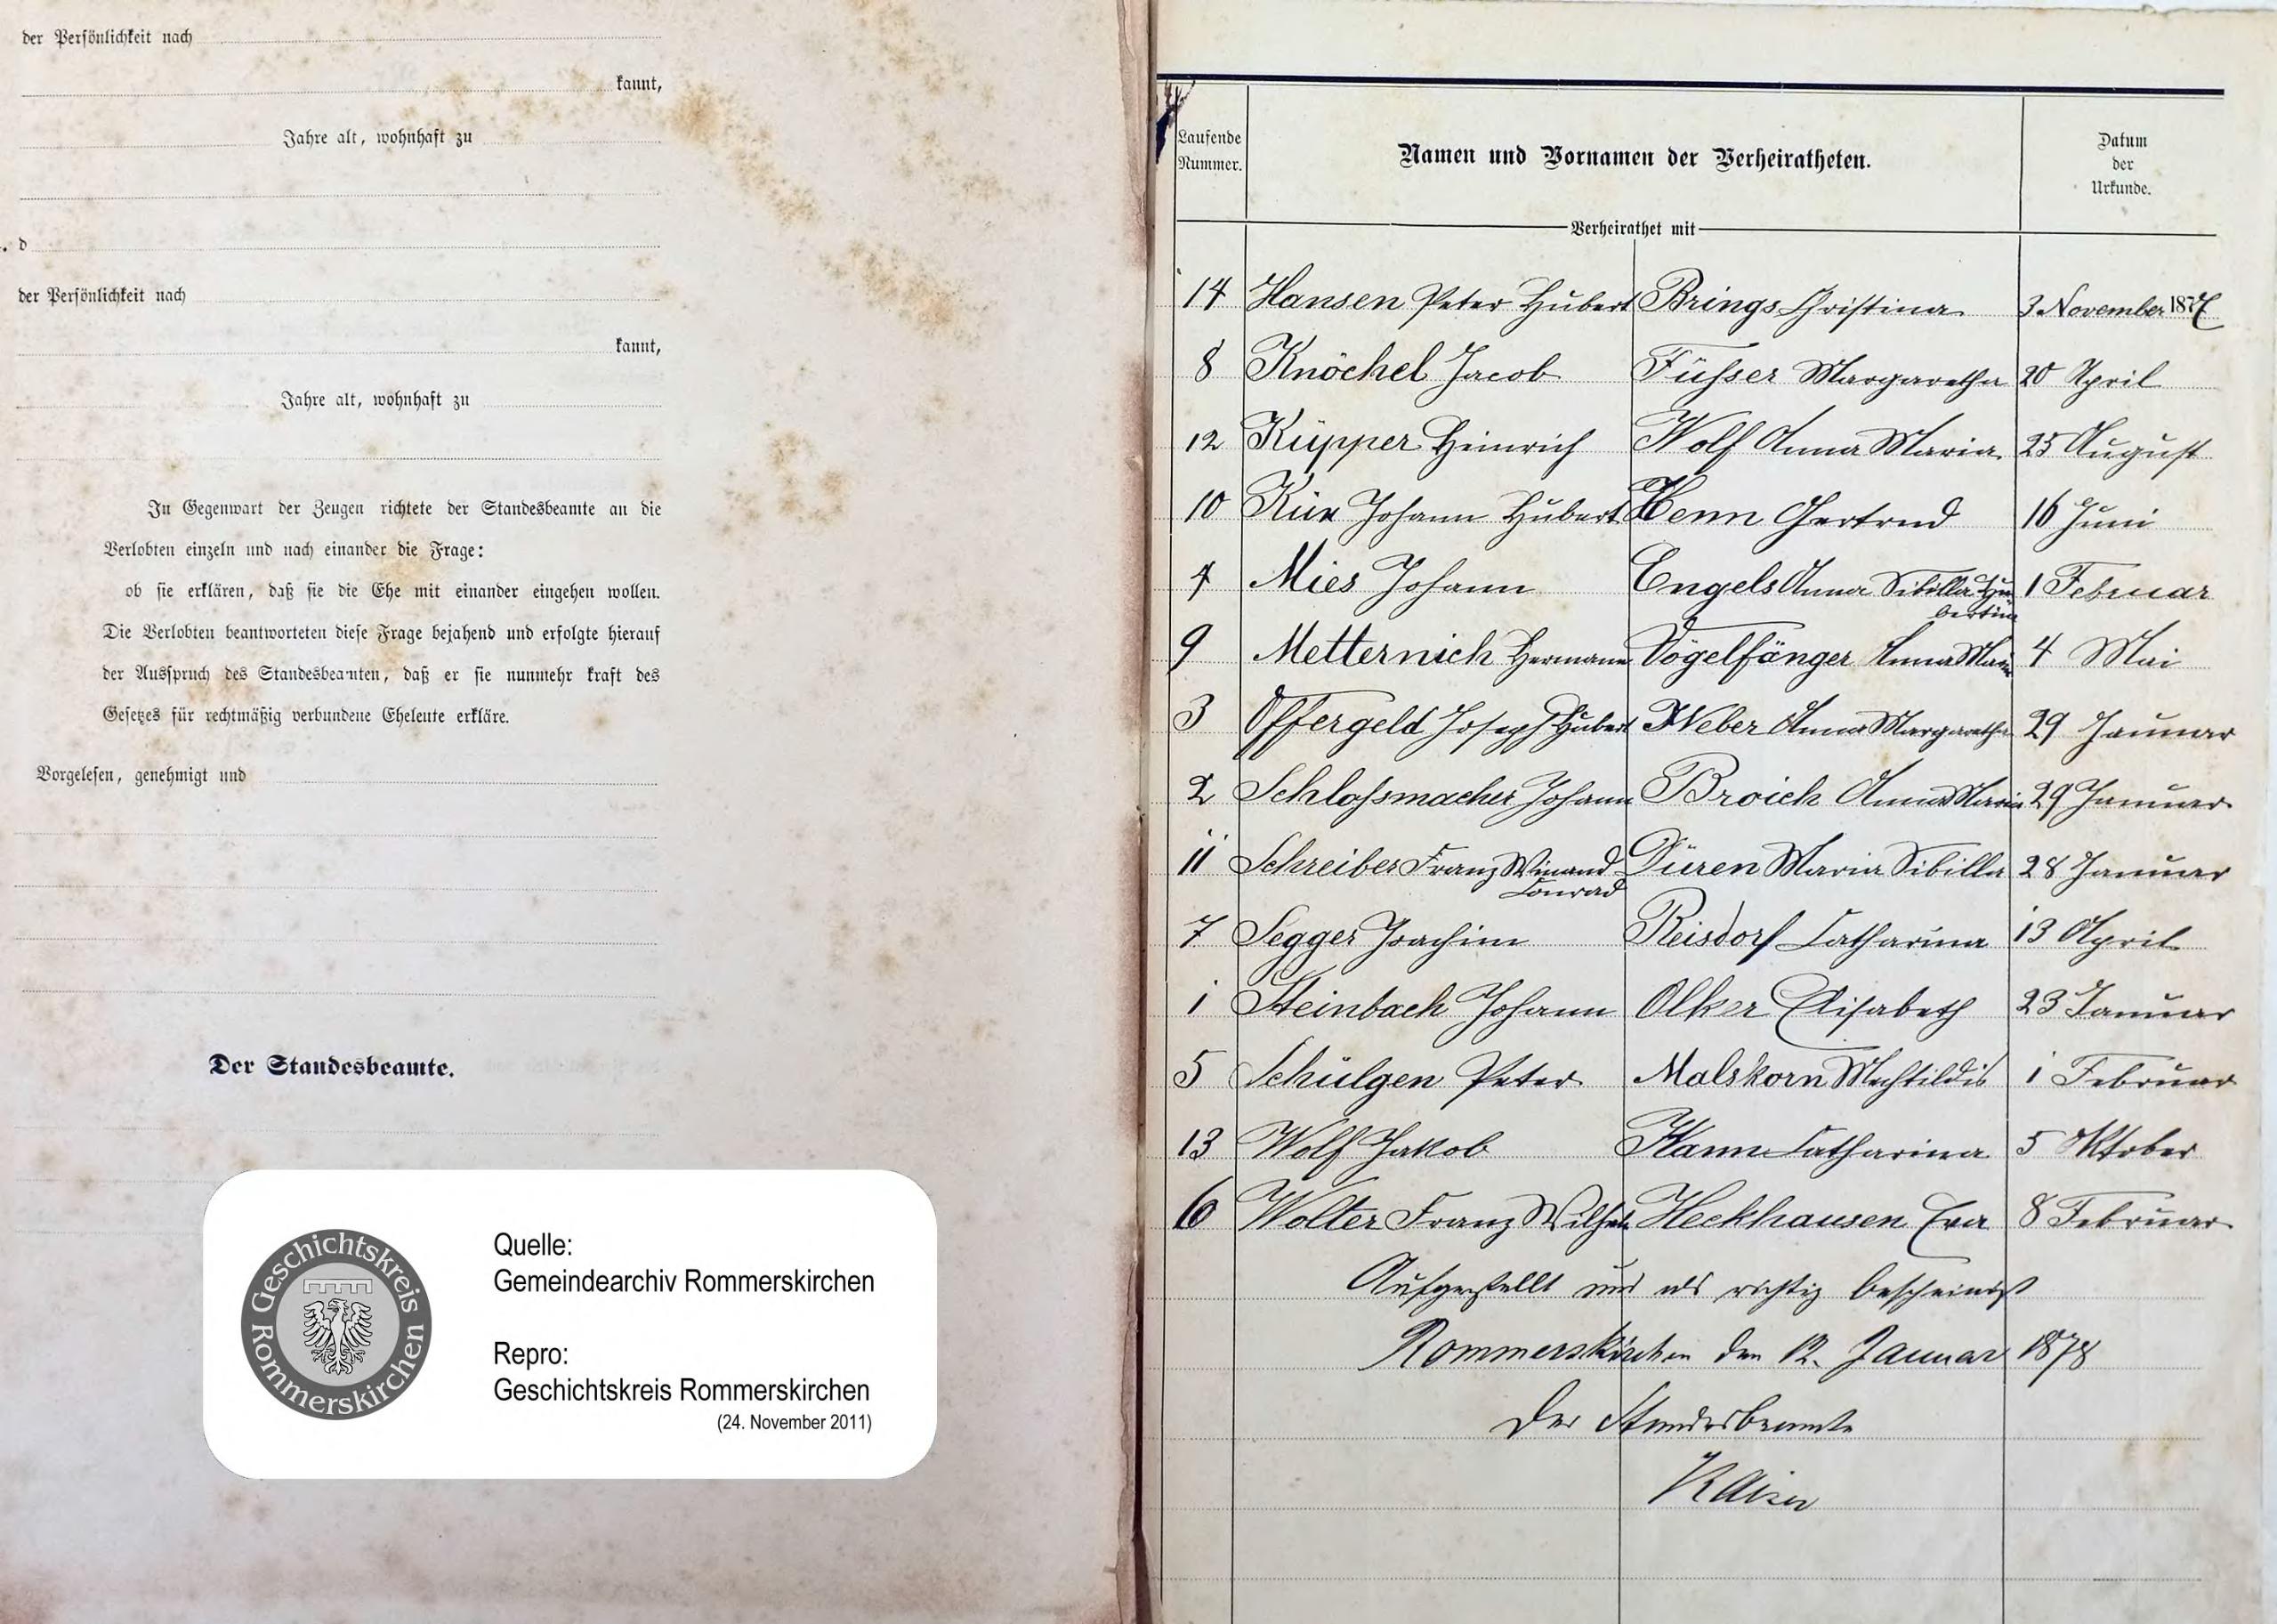 der Persönlichkeit nach
kannt,
Jahre alt, wohnhaft zu
. d
der Persönlichkeit nach
kannt,
Jahre alt, wohnhaft zu
In Gegenwart der Zeugen richtete der Standesbeamte an die
Verlobten einzeln und nach einander die Frage:
ob sie erklären, daß sie die Ehe mit einander eingehen wollen.
Die Verlobten beantworteten diese Frage bejahend und erfolgte hierauf
der Ausspruch des Standesbeamten, daß er sie nunmehr kraft des
Gesetzes für rechtmäßig verbundene Eheleute erkläre.
Vorgelesen, genehmigt und
Der Standesbeamte.
Geschichtskreis Rommerskirchen
Quelle:
Gemeindearchiv Rommerskirchen
Repro:
Geschichtskreis Rommerskirchen
(24. November 2011)
Laufende Nummer.
Namen und Vornamen der Verheiratheten.
Datum der Urkunde.
Verheirathet mit
14 Hansen Peter Hubert Brings Christina 3 November 1877
8 Knöchel Jacob Füsser Margaretha 20 April
12 Küpper Heinrich Wolf Anna Maria 25 August
10 Johann Hubert Henn Gertrud 16 Juni
4 Mies Johann Engels Anna Sibilla Hu 1 Februar
bertina
9 Metternich Hermann Vogelfänger Anna Maria 4 Mai
3 Offergeld Joseph Hubert Weber Anna Margaretha 29 Januar
2 Schlossmacher Johann Broich Anna Maria 29 Januar
11 Schreiber Franz Winand Düren Maria Sibilla 28 Januar
Conrad
7 Segger Joachim Reisdorf Catharina 13 April
1 Steinbach Johann Olker Elisabeth 23 Januar
5 Schülgen Peter Malskorn Mechtildis 1 Februar
13 Wolf Jakob Hann Catharina 5 Oktober
6 Wolter Franz Wilhelm Heckhausen Eva 8 Februar
Aufgestellt und als richtig bescheinigt
Rommerskirchen den 12. Januar 1878
Der Standesbeamte